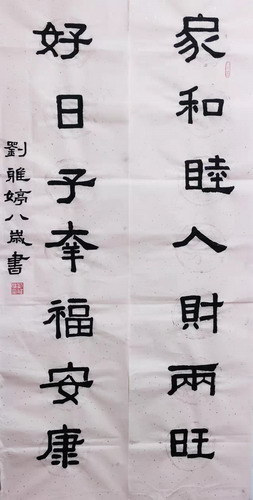 家和睦人財兩旺
好日子幸福安康
劉雅婷八歲書